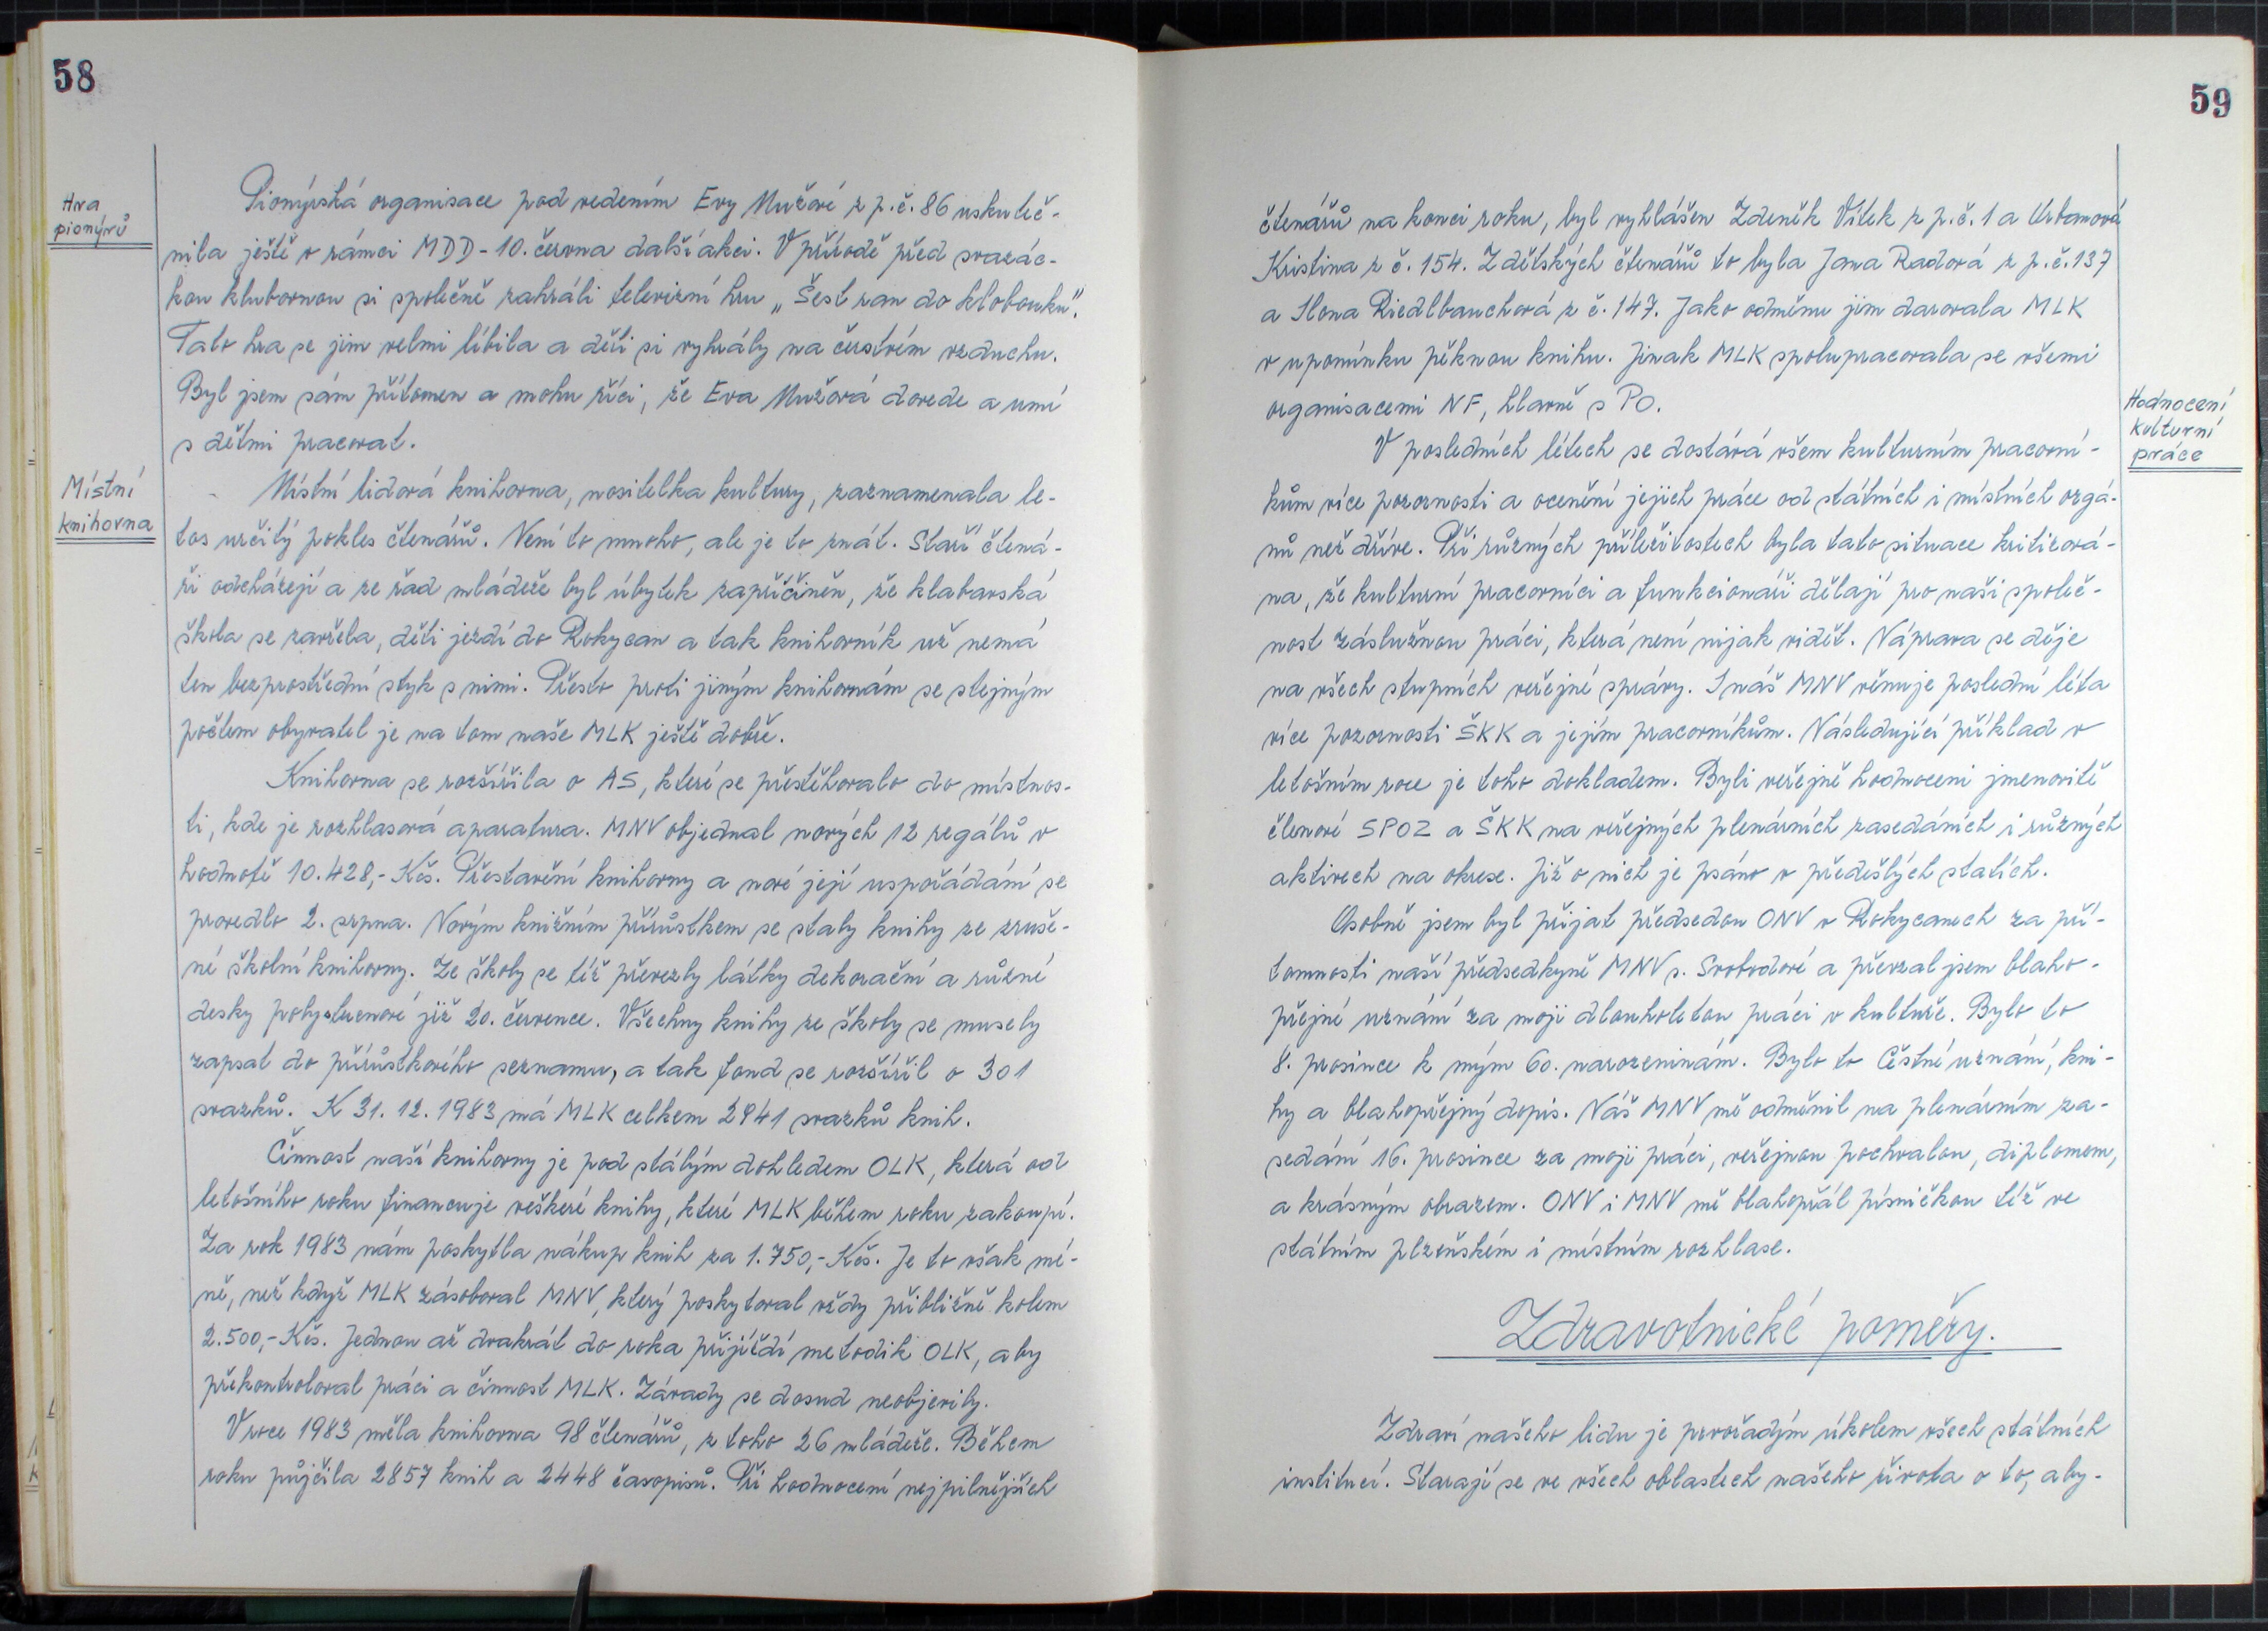 58
Hra
pionýrů
Pionýrská organisace pod vedením Evy Mužové z p.č. 86 uskuteč-
nila ještě v rámci MDD - 10. června další akci. V přírodě před svazác-
kou klubovnou si společně zahráli televizní hru „Šest ran do klobouku".
Tato hra se jim velmi líbila a děti si vyhrály na čerstvím vzduchu.
Byl jsem sám přítomen a mohu říci, že Eva Mužová dovede a umí
s dětmi pracovat.
Místní
knihovna
Místní lidová knihovna, nositelka kultury, zaznamenala le-
tos určitý pokles čtenářů. Není to mnoho, ale je to znát. Staří čtená-
ři odcházejí a ze řad mládeže byl úbytek zapříčiněn, že klabavská
škola se zavřela, děti jezdí do Rokycan a tak knihovník už nemá
ten bezprostřední styk s nimi. Přesto proti jiným knihovnám se stejným
počtem obyvatel je na tom naše MLK ještě dobře.
Knihovna se rozšířila o AS, které se přestěhovalo do místnos-
ti, kde je rozhlasová aparatura. MNV objednal nových 12 regálů v
hodnotě 10.428,- Kčs. Přestavění knihovny a nové její uspořádání se
provedlo 2. srpna. Novým knižním přírůstkem se staly knihy ze zruše-
né školní knihovny. Ze školy se též převezly látky dekorační a různé
desky polystirenové již 20. července. Všechny knihy ze školy se musely
zapsat do přírůstkového seznamu, a tak fond se rozšířil o 301
svazků. K 31. 12. 1983 má MLK celkem 2941 svazků knih.
Činnost naší knihovny je pod stálým dohledem OLK, která od
letošního roku financuje veškeré knihy, které MLK během roku zakoupí.
Za rok 1983 nám poskytla nákup knih za 1.750,- Kčs. Je to však mé-
ně, než když MLK zásoboval MNV, který poskytoval vždy přibližně kolem
2.500,- Kčs. Jednou až dvakrát do roka přijíždí metodik OLK, aby
překontroloval práci a činnost MLK. Závady se dosud neobjevily.
V roce 1983 měla knihovna 98 čtenářů, z toho 26 mládeže. Během
roku půjčila 2857 knih a 2448 časopisů. Při hodnocení nejpilnějších
59
čtenářů na konci roku, byl vyhlášen Zdeněk Vítek z p.č. 1 a Urbanová
Kristina z č. 154. Z dětských čtenářů to byla Jana Radová z p.č. 137
a Ilona Riedlbauchová z č. 147. Jako odměnu jim darovala MLK
v upomínku pěknou knihu. Jinak MLK spolupracovala se všemi
organisacemi NF, hlavně s PO.
Hodnocení
kulturní
práce
V posledních létech se dostává všem kulturním pracovní-
kům více pozornosti a ocenění jejich práce od státních i místních orgá-
nů než dříve. Při různých příležitostech byla tato situace kritizová-
na, že kulturní pracovníci a funkcionáři dělají pro naši společ-
nost záslužnou práci, která není nijak vidět. Náprava se děje
na všech stupních veřejné správy. I náš MNV věnuje poslední léta
více pozornosti ŠKK a jejím pracovníkům. Následující příklad v
letošním roce je toho dokladem. Byli veřejně hodnoceni jmenovitě
členové SPOZ a ŠKK na veřejných plenárních zasedáních i různých
aktivech na okrese. Již o nich je psáno v předešlých statích.
Osobně jsem byl přijat předsedou ONV v Rokycanech za pří-
tomnosti naší předsedkyně MNV s. Svobodové a převzal jsem blaho-
přejné uznání za moji dlouholetou práci v kultuře. Bylo to
8. prosince k mým 60. narozeninám. Bylo to Čestné uznání, kni-
hy a blahopřejný dopis. Náš MNV mě odměnil na plenárním za-
sedání 16. prosince za moji práci, veřejnou pochvalou, diplomem,
a krásným obrazem. ONV i MNV mě blahopřál písničkou též ve
státním plzeňském i místním rozhlase.
Zdravotnické poměry.
Zdraví našeho lidu je prvořadým úkolem všech státních
institucí. Starají se ve všech oblastech našeho života o to, aby-